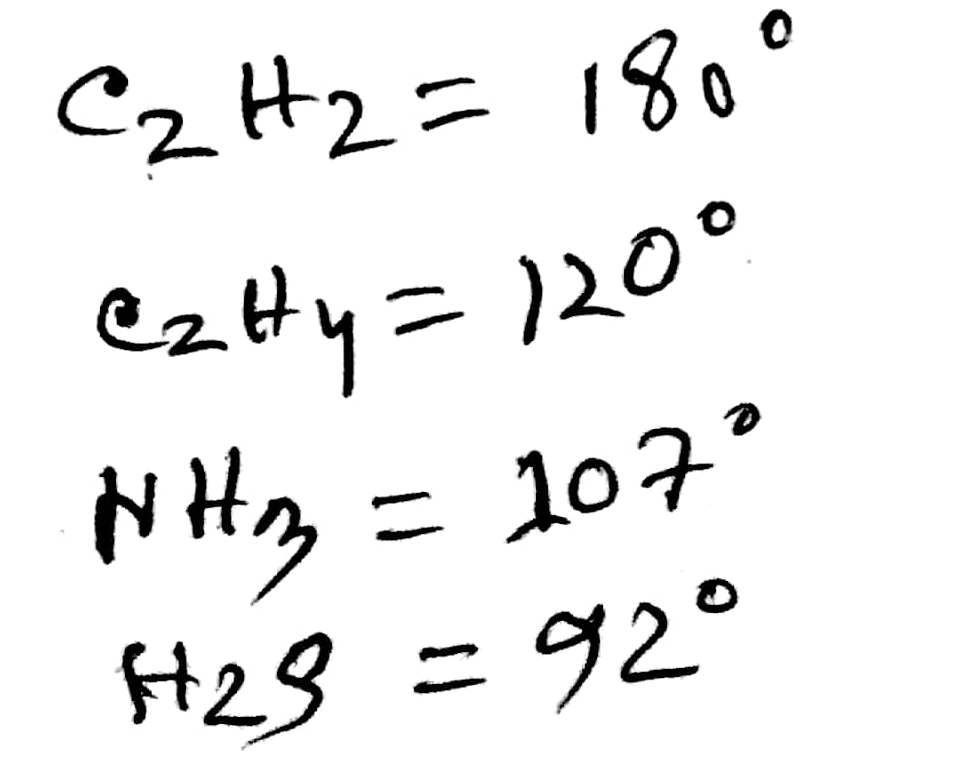 C₂H₂ = 180°
C₂H₄ = 120°
NH₃ = 107°
H₂S = 92°